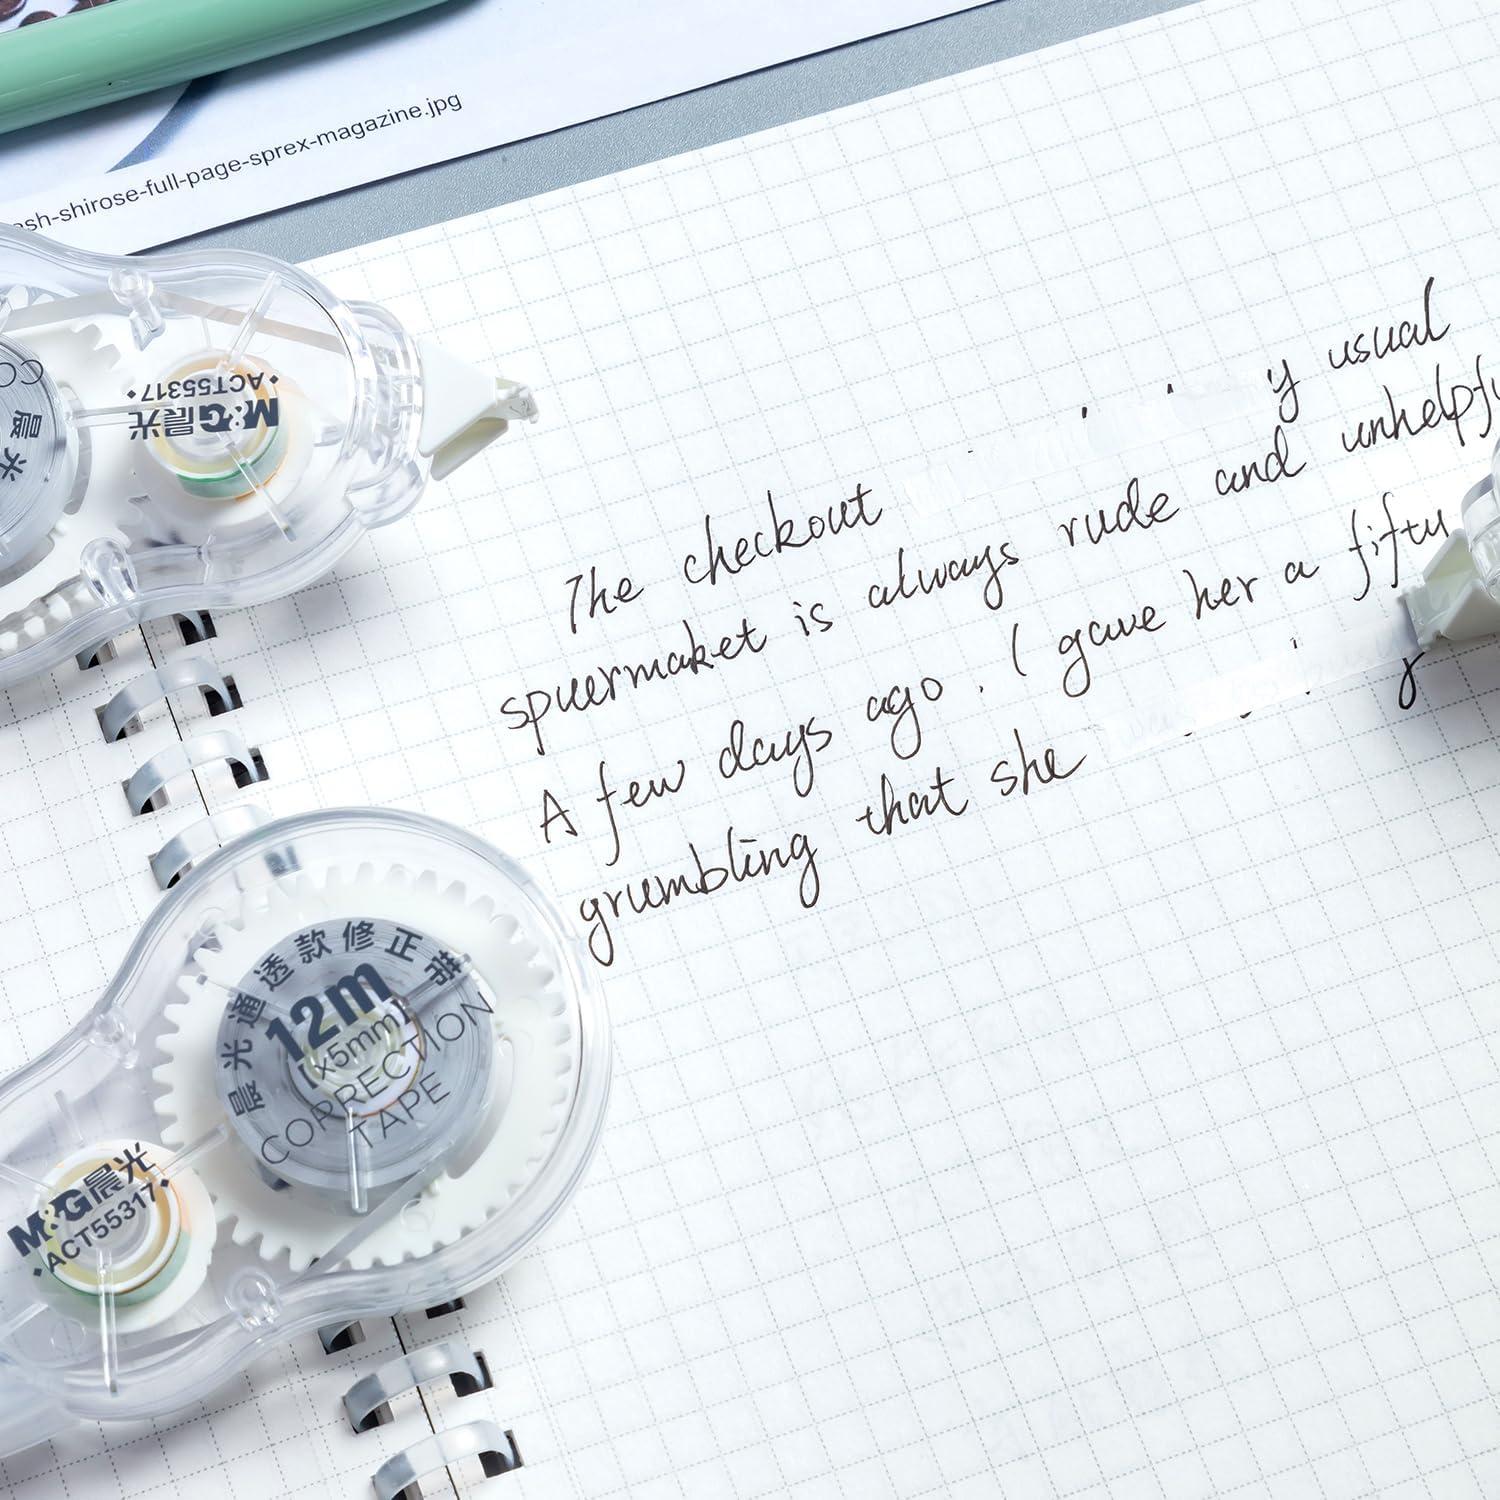 ash-shirose-full-page-sprex-magazine.jpg
M&G晨光
ACT55317
The checkout y usual
spuermaket is always rude and unhelpfu
A few days ago. I gave her a fifty
grumbling that she
晨光通透款修正带
12m
[x5mm]
CORRECTION
TAPE
M&G晨光
ACT55317